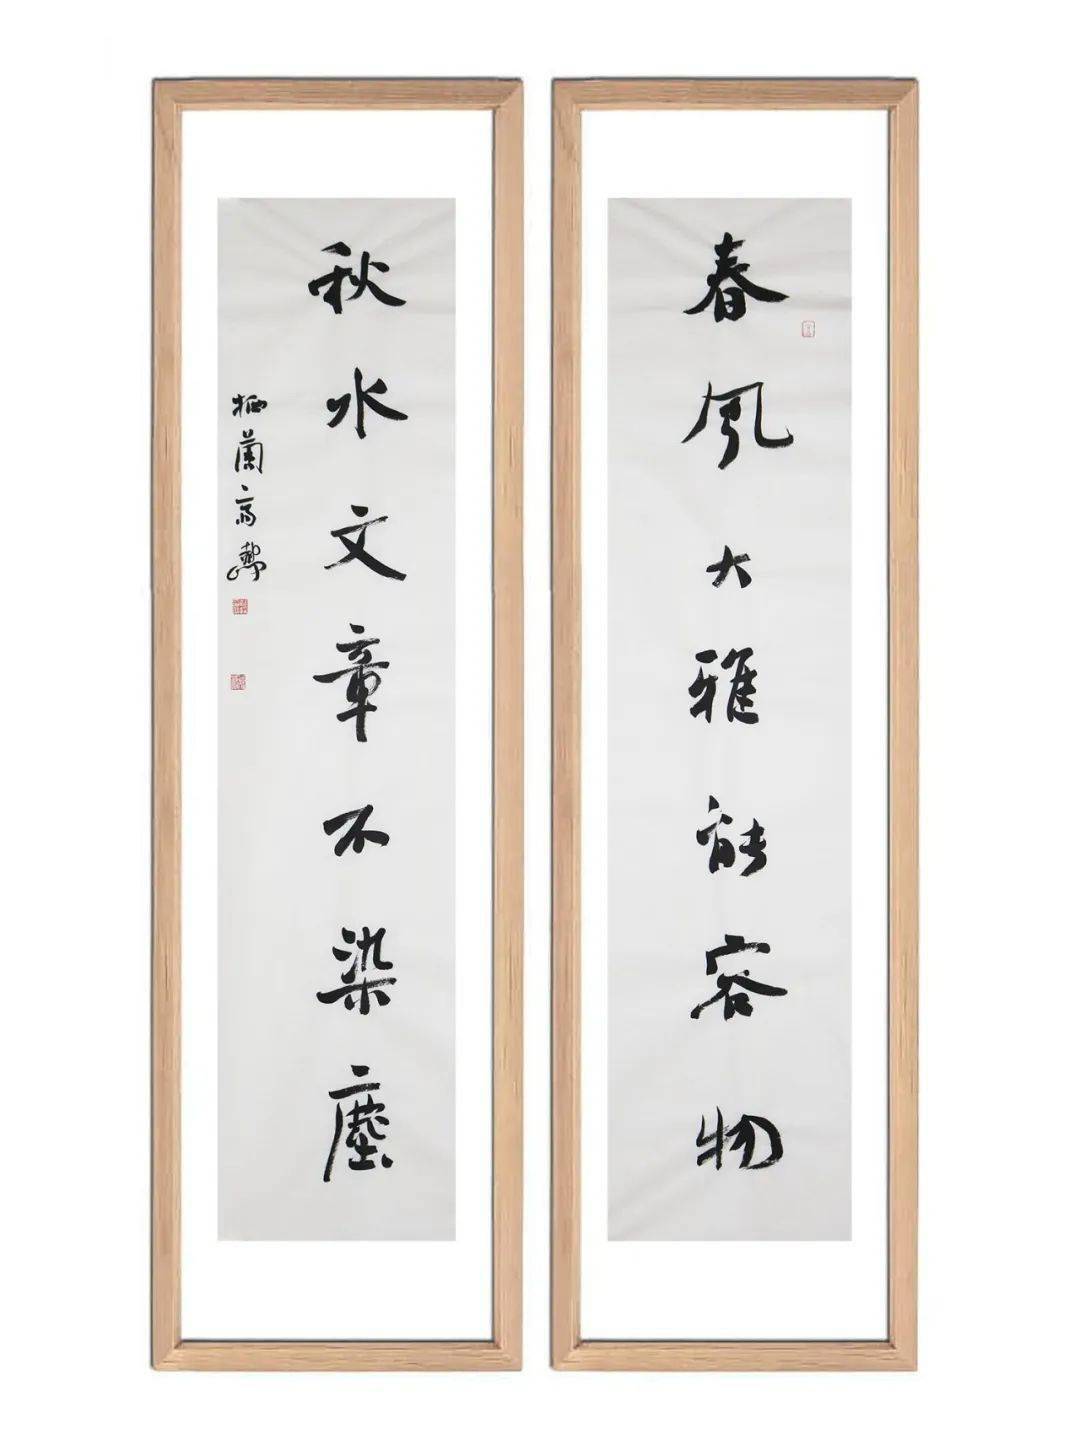 春风大雅能容物
秋水文章不染塵
栖蘭高